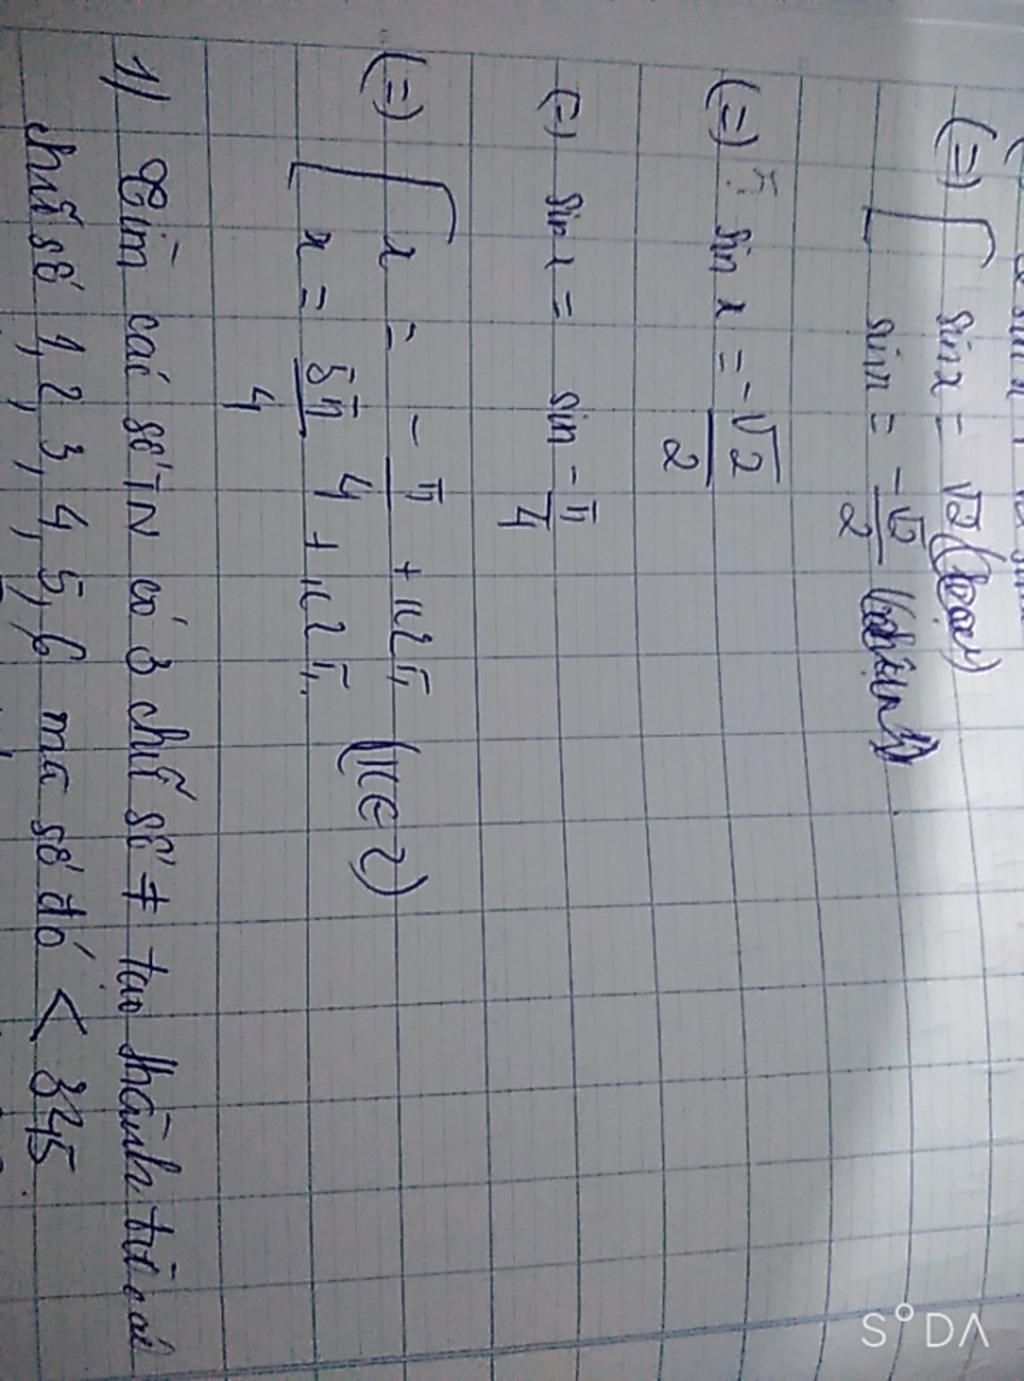 (=) [ sin x = √2 (loại)
sin x = -√2/2 (nhận)
(=) sin x = -√2/2
(=) sin x = sin -π/4
(=) [ x = -π/4 + k2π
x = 5π/4 + k2π (k ∈ Z)
1) Tìm các số TN có 3 chữ số ≠ tạo thành từ các
chữ số 1, 2, 3, 4, 5, 6 mà số đó < 345
S°DA